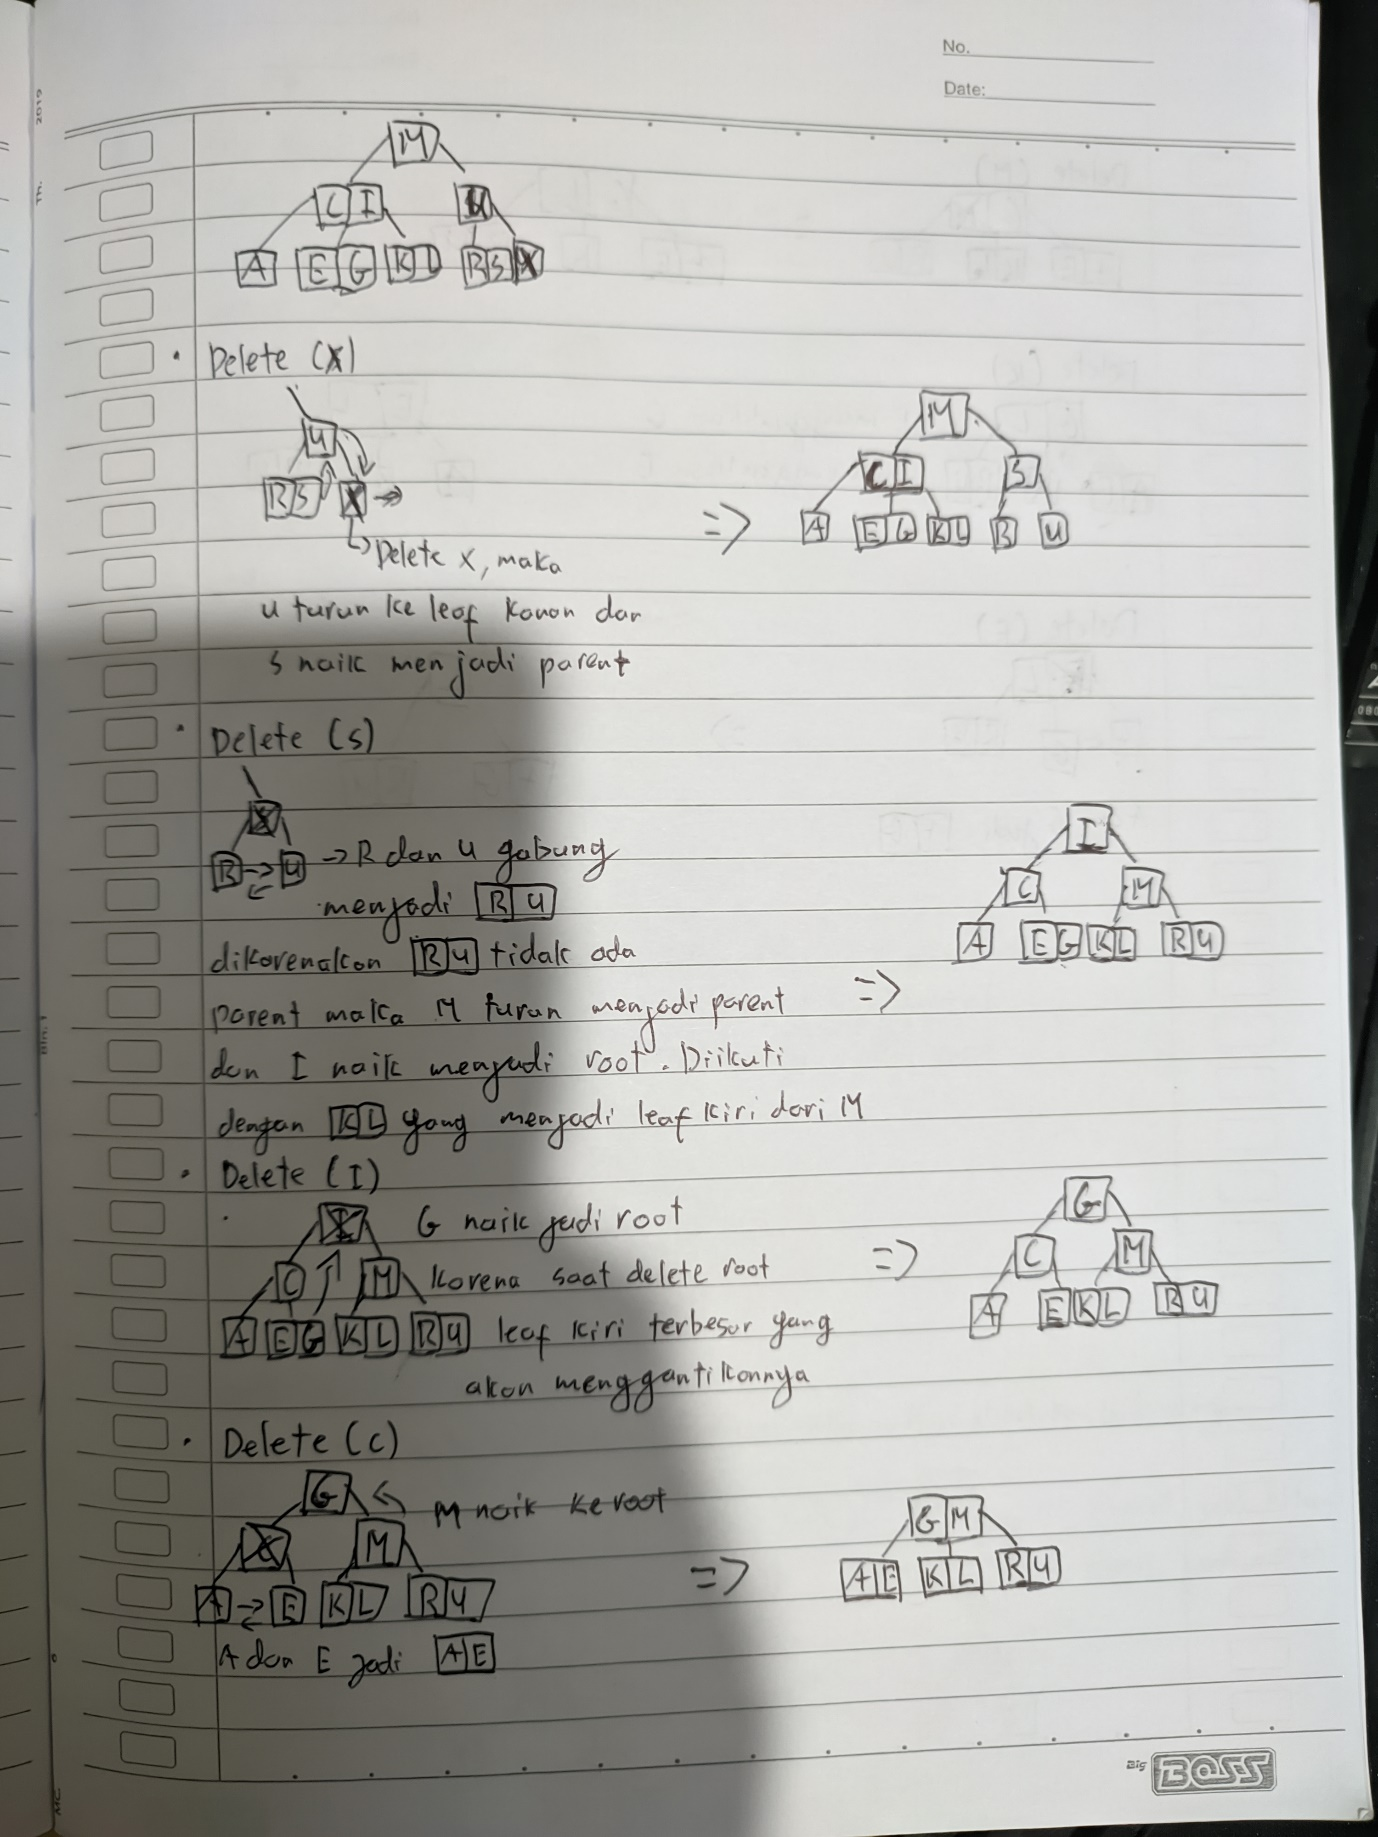 No.
Date:
2019
Th.
M
C I U
A E G K L R S X
Delete (X)
U
R S X
Delete X, maka
U turun ke leaf kanan dan
S naik menjadi parent
=>
M
C I S
A E G K L R U
Delete (S)
S
R U -> R dan U gabung
menjadi R U
dikarenakan R U tidak ada
parent maka M turun menjadi parent
dan I naik menjadi root. Diikuti
dengan K L yang menjadi leaf kiri dari M
=>
I
C M
A E G K L R U
Delete (I)
I G naik jadi root
C M karena saat delete root
A E G K L R U leaf kiri terbesar yang
akan menggantikannya
=>
G
C M
A E K L R U
Delete (C)
G M naik ke root
C M
A E K L R U
A dan E jadi A E
=>
G M
A E K L R U
Big BOSS